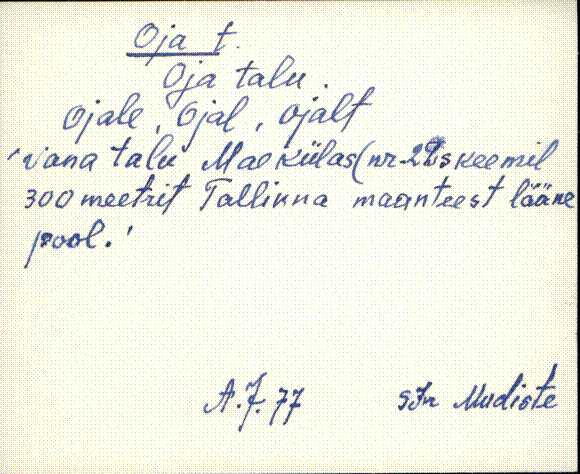 Oja t.
Oja talu.
Ojale, Ojal, Ojalt
'Vana talu Maekülas (nr 22 skeemil
300 meetrit Tallinna maanteest lääne
pool.'
A.J. 77 SJn Mudiste